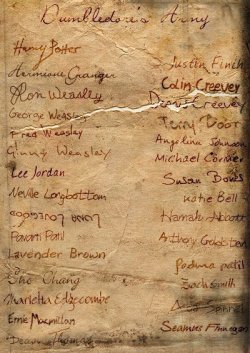 Dumbledore's Army
Harry Potter
Hermione Granger
Ron Weasly
George Weasly
Fred Weasley
Ginny Weasley
Lee Jordan
Neville Longbottom
Luna Lovegood
Parvati Patil
Lavender Brown
Cho Chang
Marietta Edgecombe
Ernie Macmillan
Dean Thomas
Justin Finch
Colin Creevey
Dennis Creevey
Terry Boot
Angelina Johnson
Michael Corner
Susan Bones
Katie Bell
Hannah Abbott
Anthony Goldstein
Padma patil
Zach smith
Seamus Finnegan